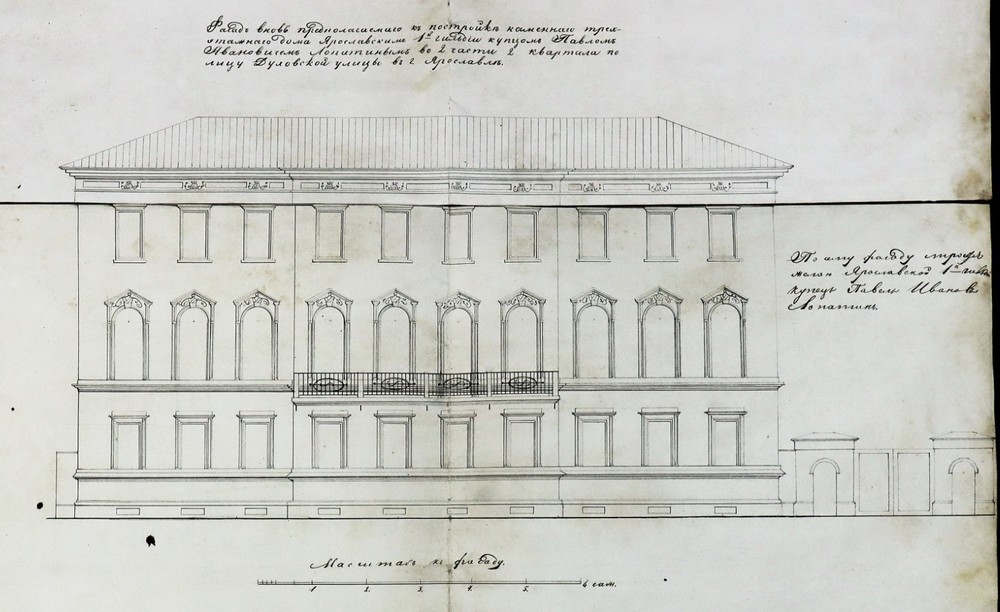 Фасадъ вновь предполагаемаго къ постройкѣ каменнаго трех-
этажнаго дома Ярославскимъ 1й гильдіи купцомъ Павломъ
Ивановичемъ Лопатинымъ во 2 части 2 квартила по
лицу Духовской улицы въ г Ярославлѣ.
По ему фасаду
Ярославской 1й
купецъ Павелъ Ивановъ
Лопатинъ.
Масштабъ къ фасаду.
1 2. 3. 4. 5. 6 саж.